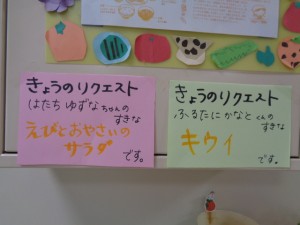 きょうのリクエスト
はたち ゆずなちゃんの
すきな
えびとおやさいの
サラダ
です。
きょうのリクエスト
ふるたに かなとくんの
すきな
キウイ
です。